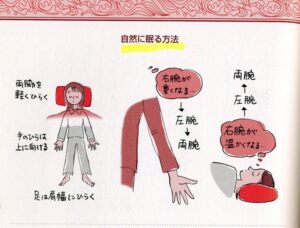 自然に眠る方法
両腕を
軽くひらく
手のひらは
上に向ける
足は肩幅にひらく
右腕が
重くなる…
↓
左腕
↓
両腕
両腕
↑
左腕
↑
右腕が
温かくなる…